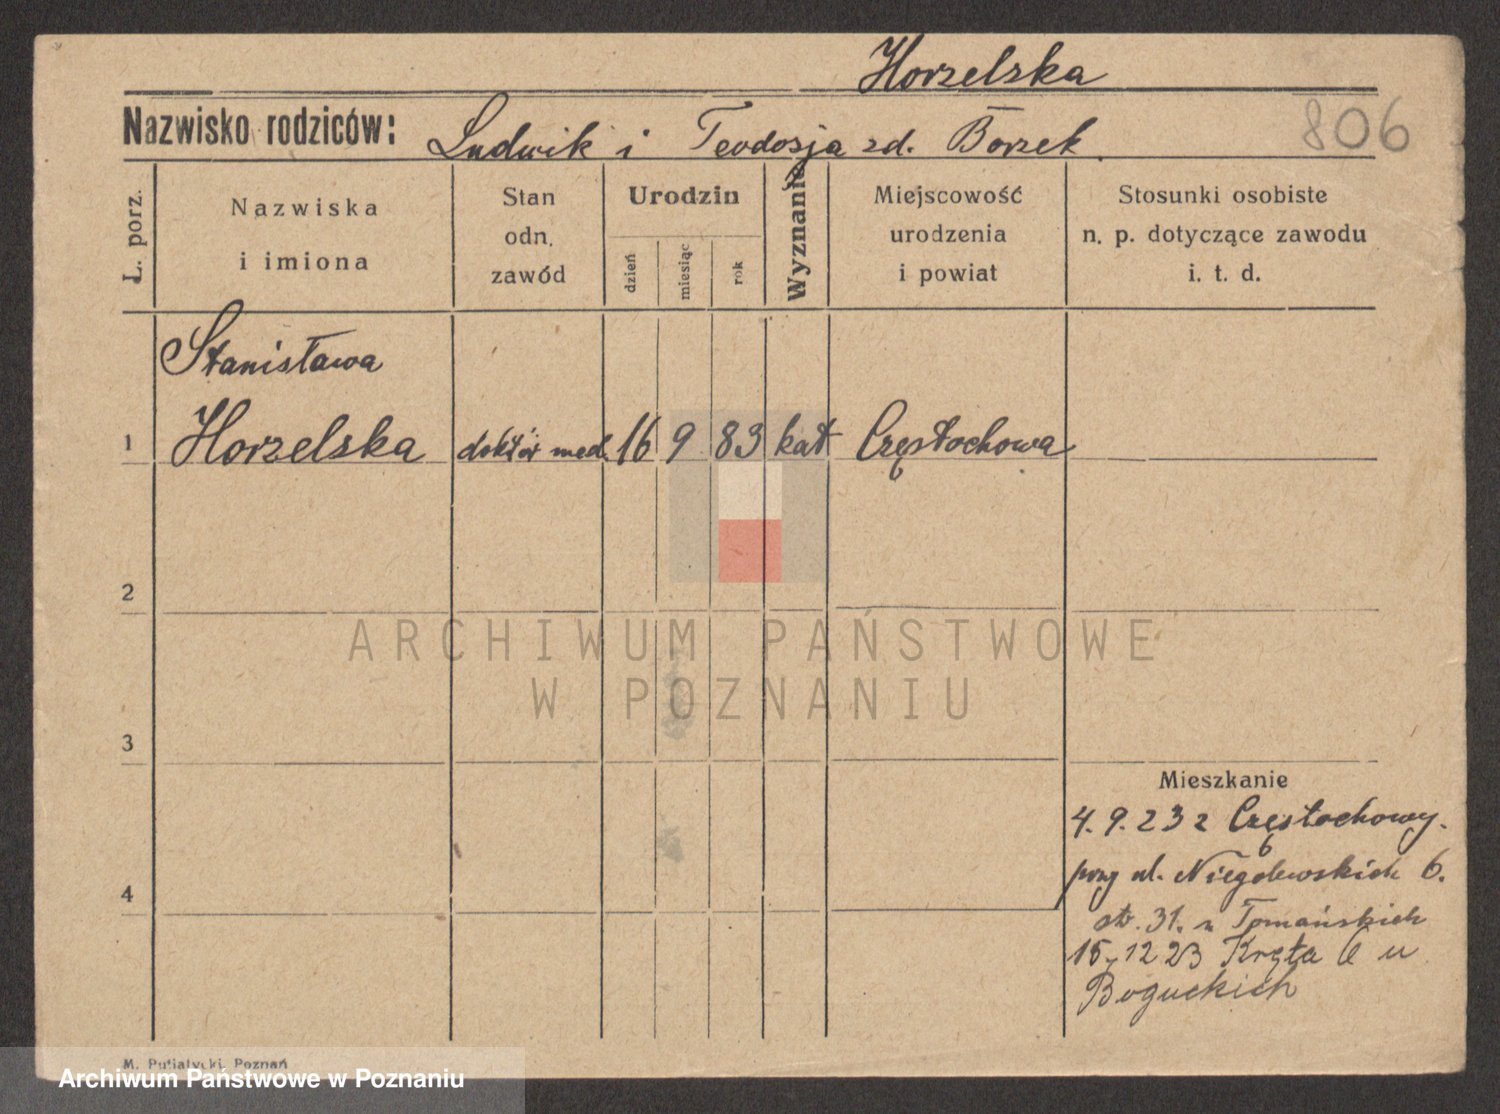 Horzelska
806
Nazwisko rodziców: Ludwik i Teodozja zd. Borzek.
Ł. porz.
Nazwiska
i imiona
Stan
odn.
zawód
Urodzin
dzień
miesiąc
rok
Wyznanie
Miejscowość
urodzenia
i powiat
Stosunki osobiste
n. p. dotyczące zawodu
i. t. d.
Stanisława
1 Horzelska doktór med. 16 9 83 kat Częstochowa
2
ARCHIWUM PAŃSTWOWE
W POZNANIU
3
Mieszkanie
4. 9. 23 z Częstochowy.
przy ul. Niegolewskich 6.
4
31. u Tomańskich
15, 12 23 Kręta 6 u
Boguckich
M. Putiatycki, Poznań
Archiwum Państwowe w Poznaniu